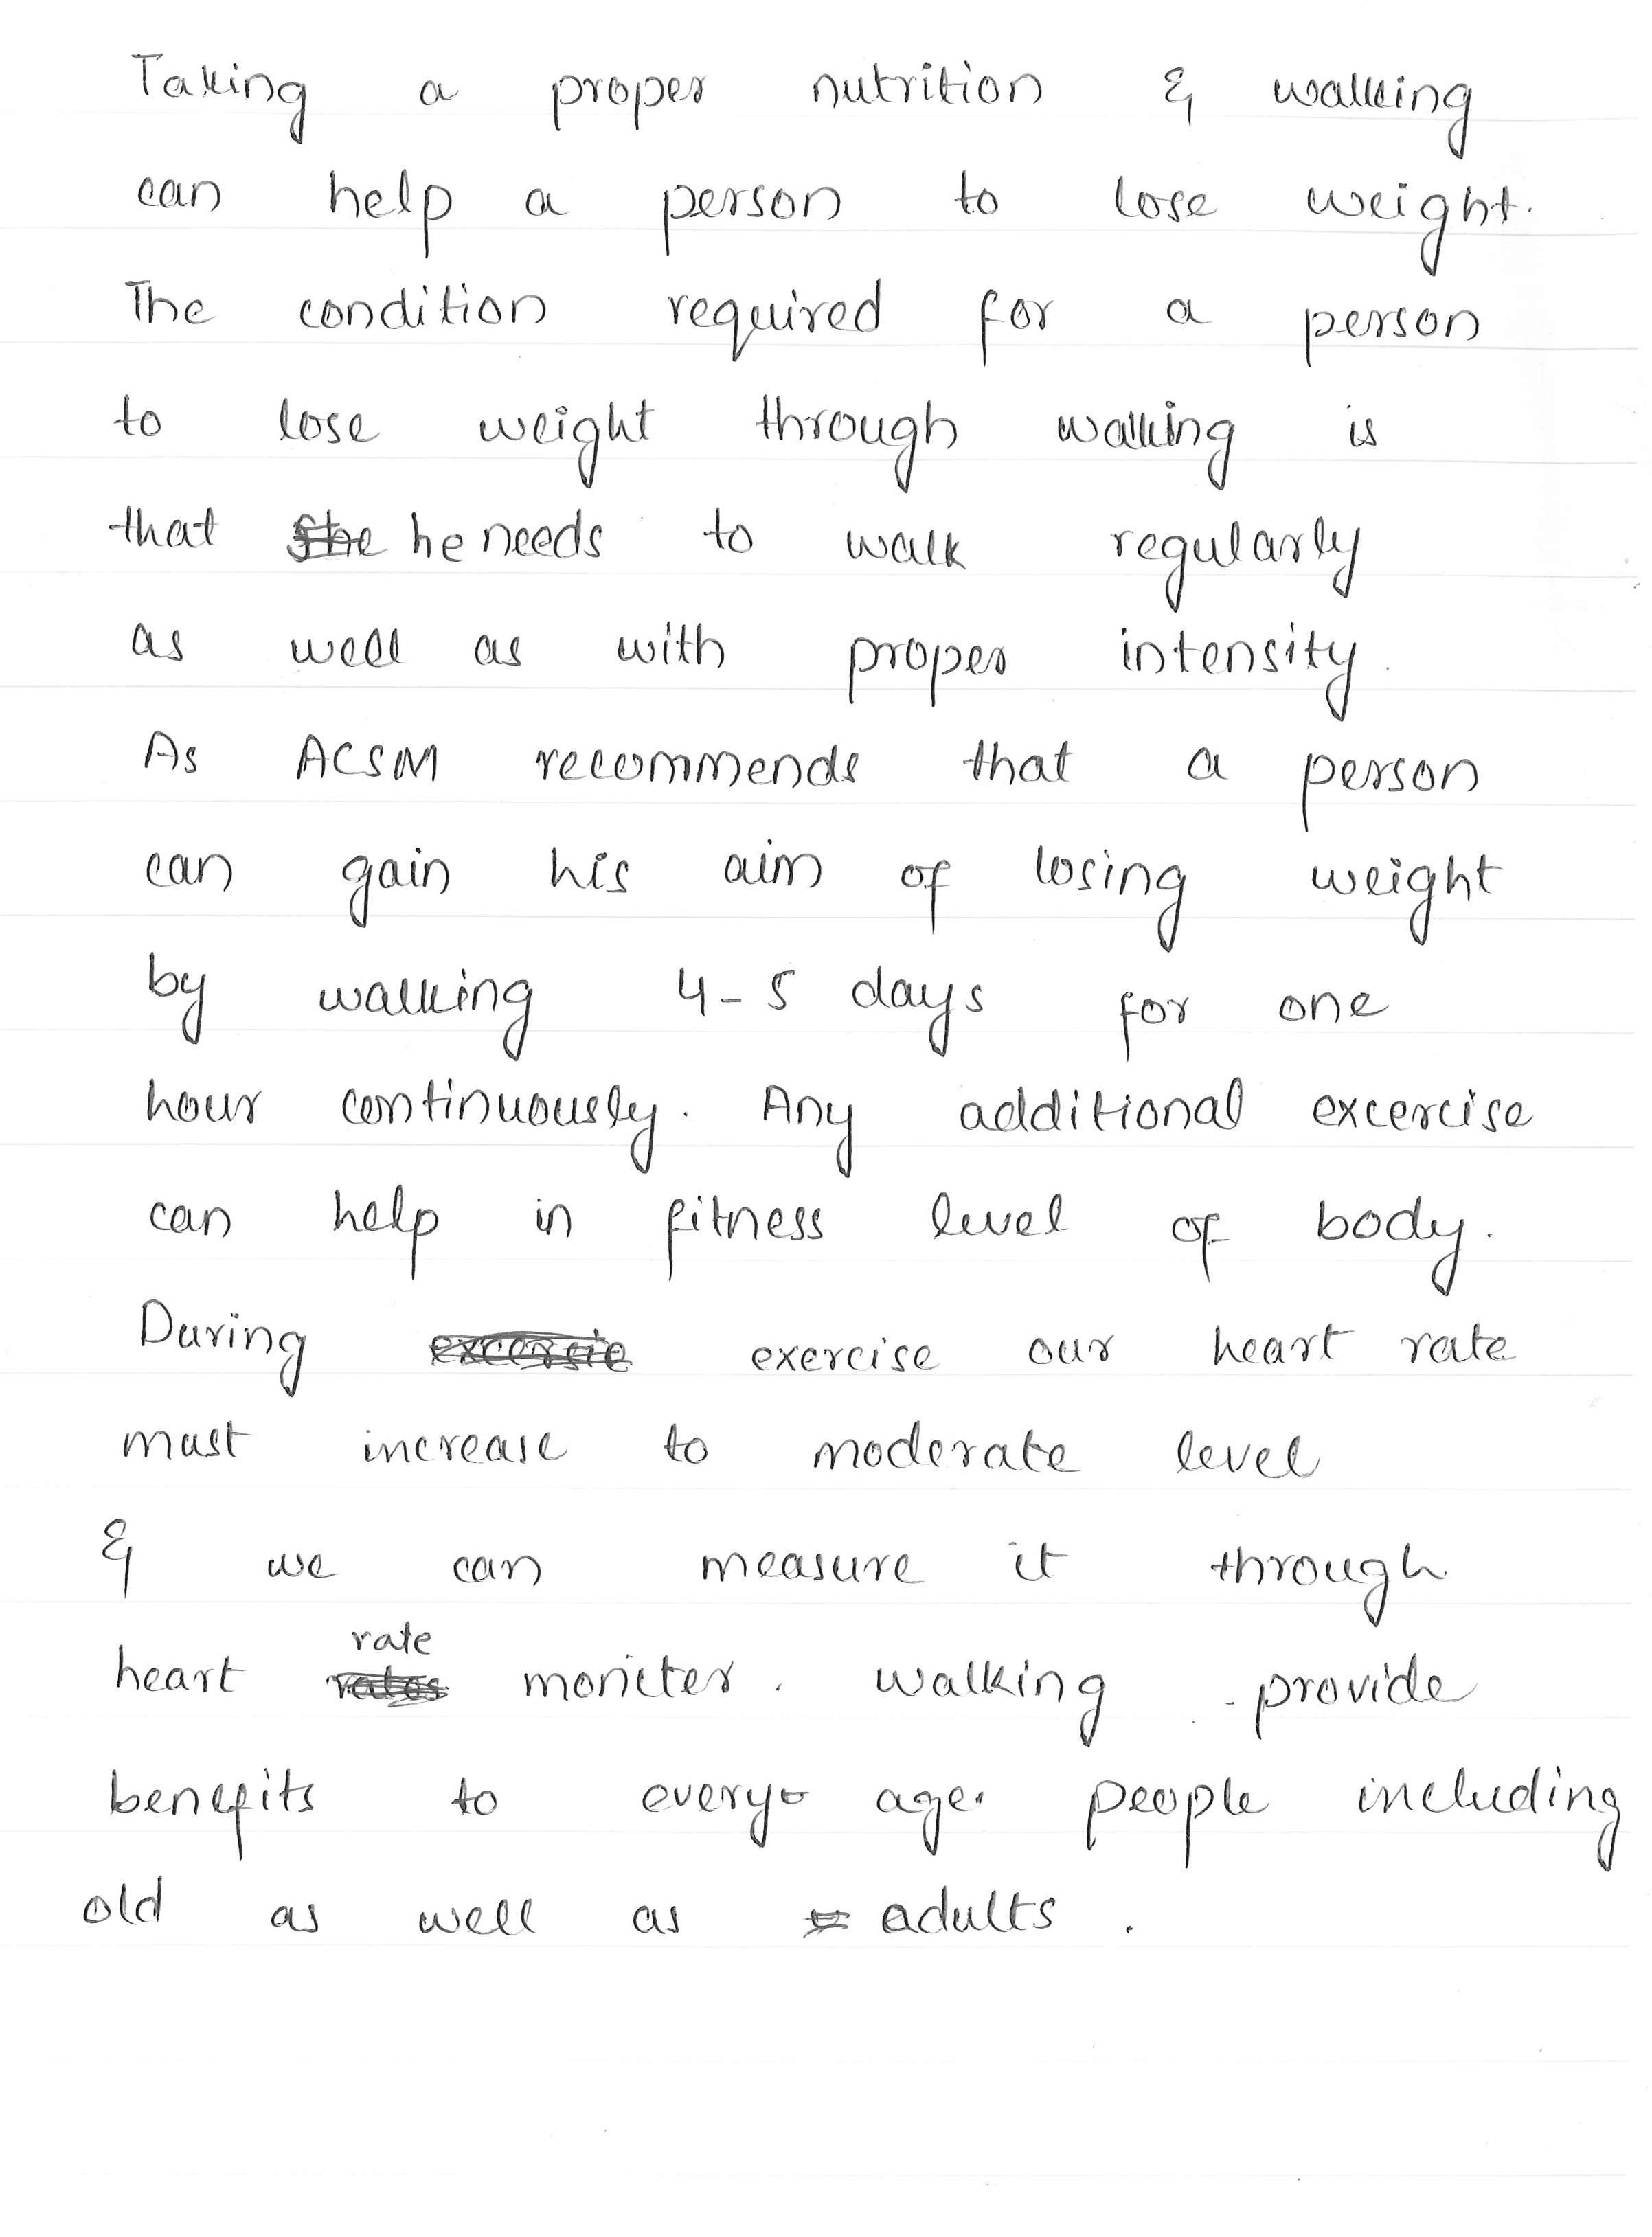 Taking a proper nutrition & walking
can help a person to lose weight.
The condition required for a person
to lose weight through walking is
that he needs to walk regularly
as well as with proper intensity.
As ACSM recommends that a person
can gain his aim of losing weight
by walking 4-5 days for one
hour continuously. Any additional excercise
can help in fitness level of body.
During exercise our heart rate
must increase to moderate level
& we can measure it through
heart rate moniter. walking provide
benefits to every age. people including
old as well as adults.